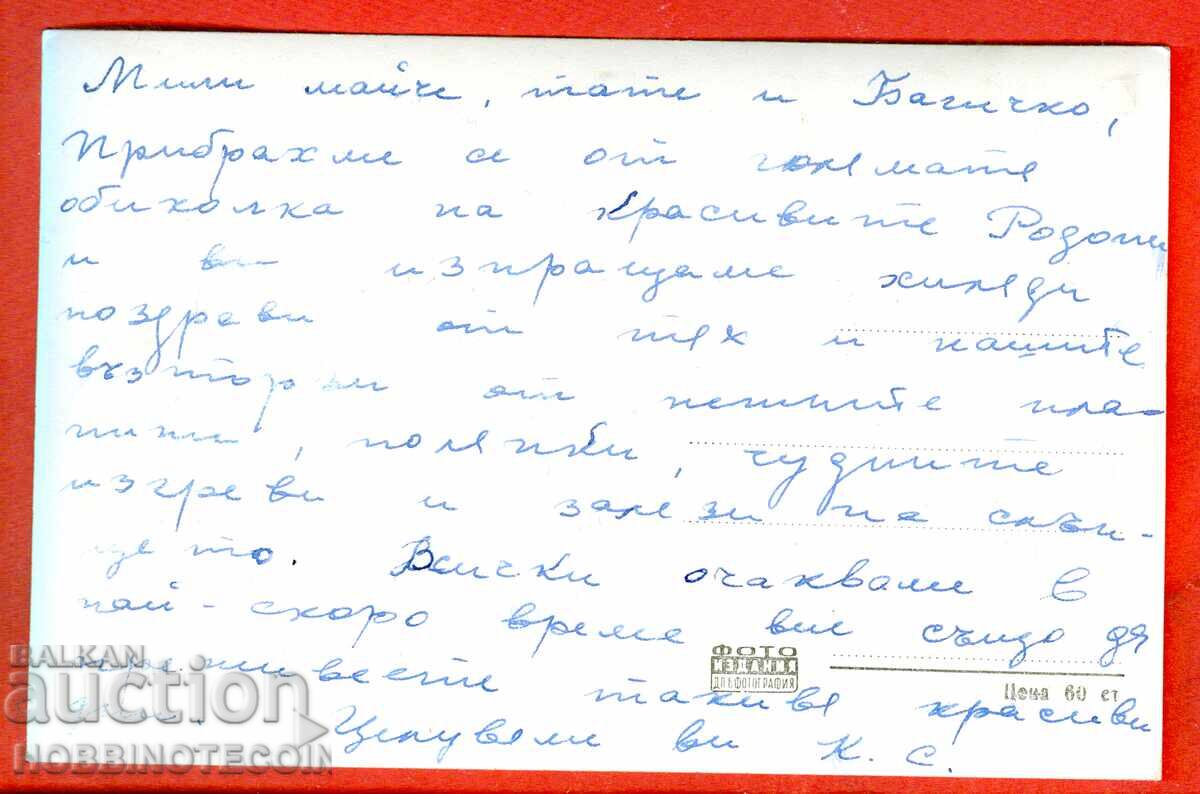 Мили майче, тате и Багичко,
Прибрахме се от голямата
обиколка на красивите Родопи
и ви изпращаме хиляди
поздрави от тях и нашите
възторзи от нашите пла-
нини, полянки, чудните
изгреви и залези на слън-
цето. Всички очакваме в
най-скоро време вие също да
преживеете такива красиви
дни. Целуваме ви К. С.
ФОТО
ИЗДАНИЯ
ДП БЪЛГ. ФОТОГРАФИЯ
Цена 60 ст
BALKAN
auction
HOBBINOTECOIN